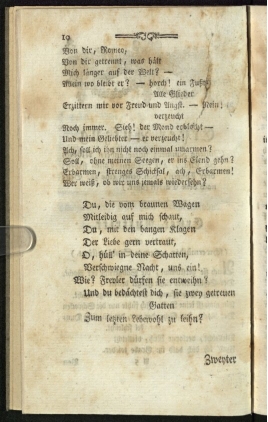 10
Von dir, Romeo,
Von dir getrennt, was hält
Mich länger auf der Welt? —
Allein wo bleibt er? — horch! ein Fußtritt
Alle Glieder
Erzittern mir vor Freud und Angst. — Nein!
verzeucht
Noch immer. Sieh! der Mond erbleicht —
Und mein Geliebter — er verzeucht!
Ach, soll ich ihn nicht noch einmal umarmen?
Soll, ohne meinen Segen, er ins Elend gehn?
Erbarmen, strenges Schicksal, ach, Erbarmen!
Wer weiß, ob wir uns jemals wiedersehn?
Du, die vom braunen Wagen
Mitleidig auf mich schaut,
Du, mit den bangen Klagen
Der Liebe gern vertraut,
O, hüll' in deine Schatten,
Verschwiegne Nacht, uns ein!
Wie? Frevler dürfen sie entweihn?
Und du bedächtest dich, sie zwey getreuen
Gatten
Zum letzten Lebewohl zu leihn?
Zweyter